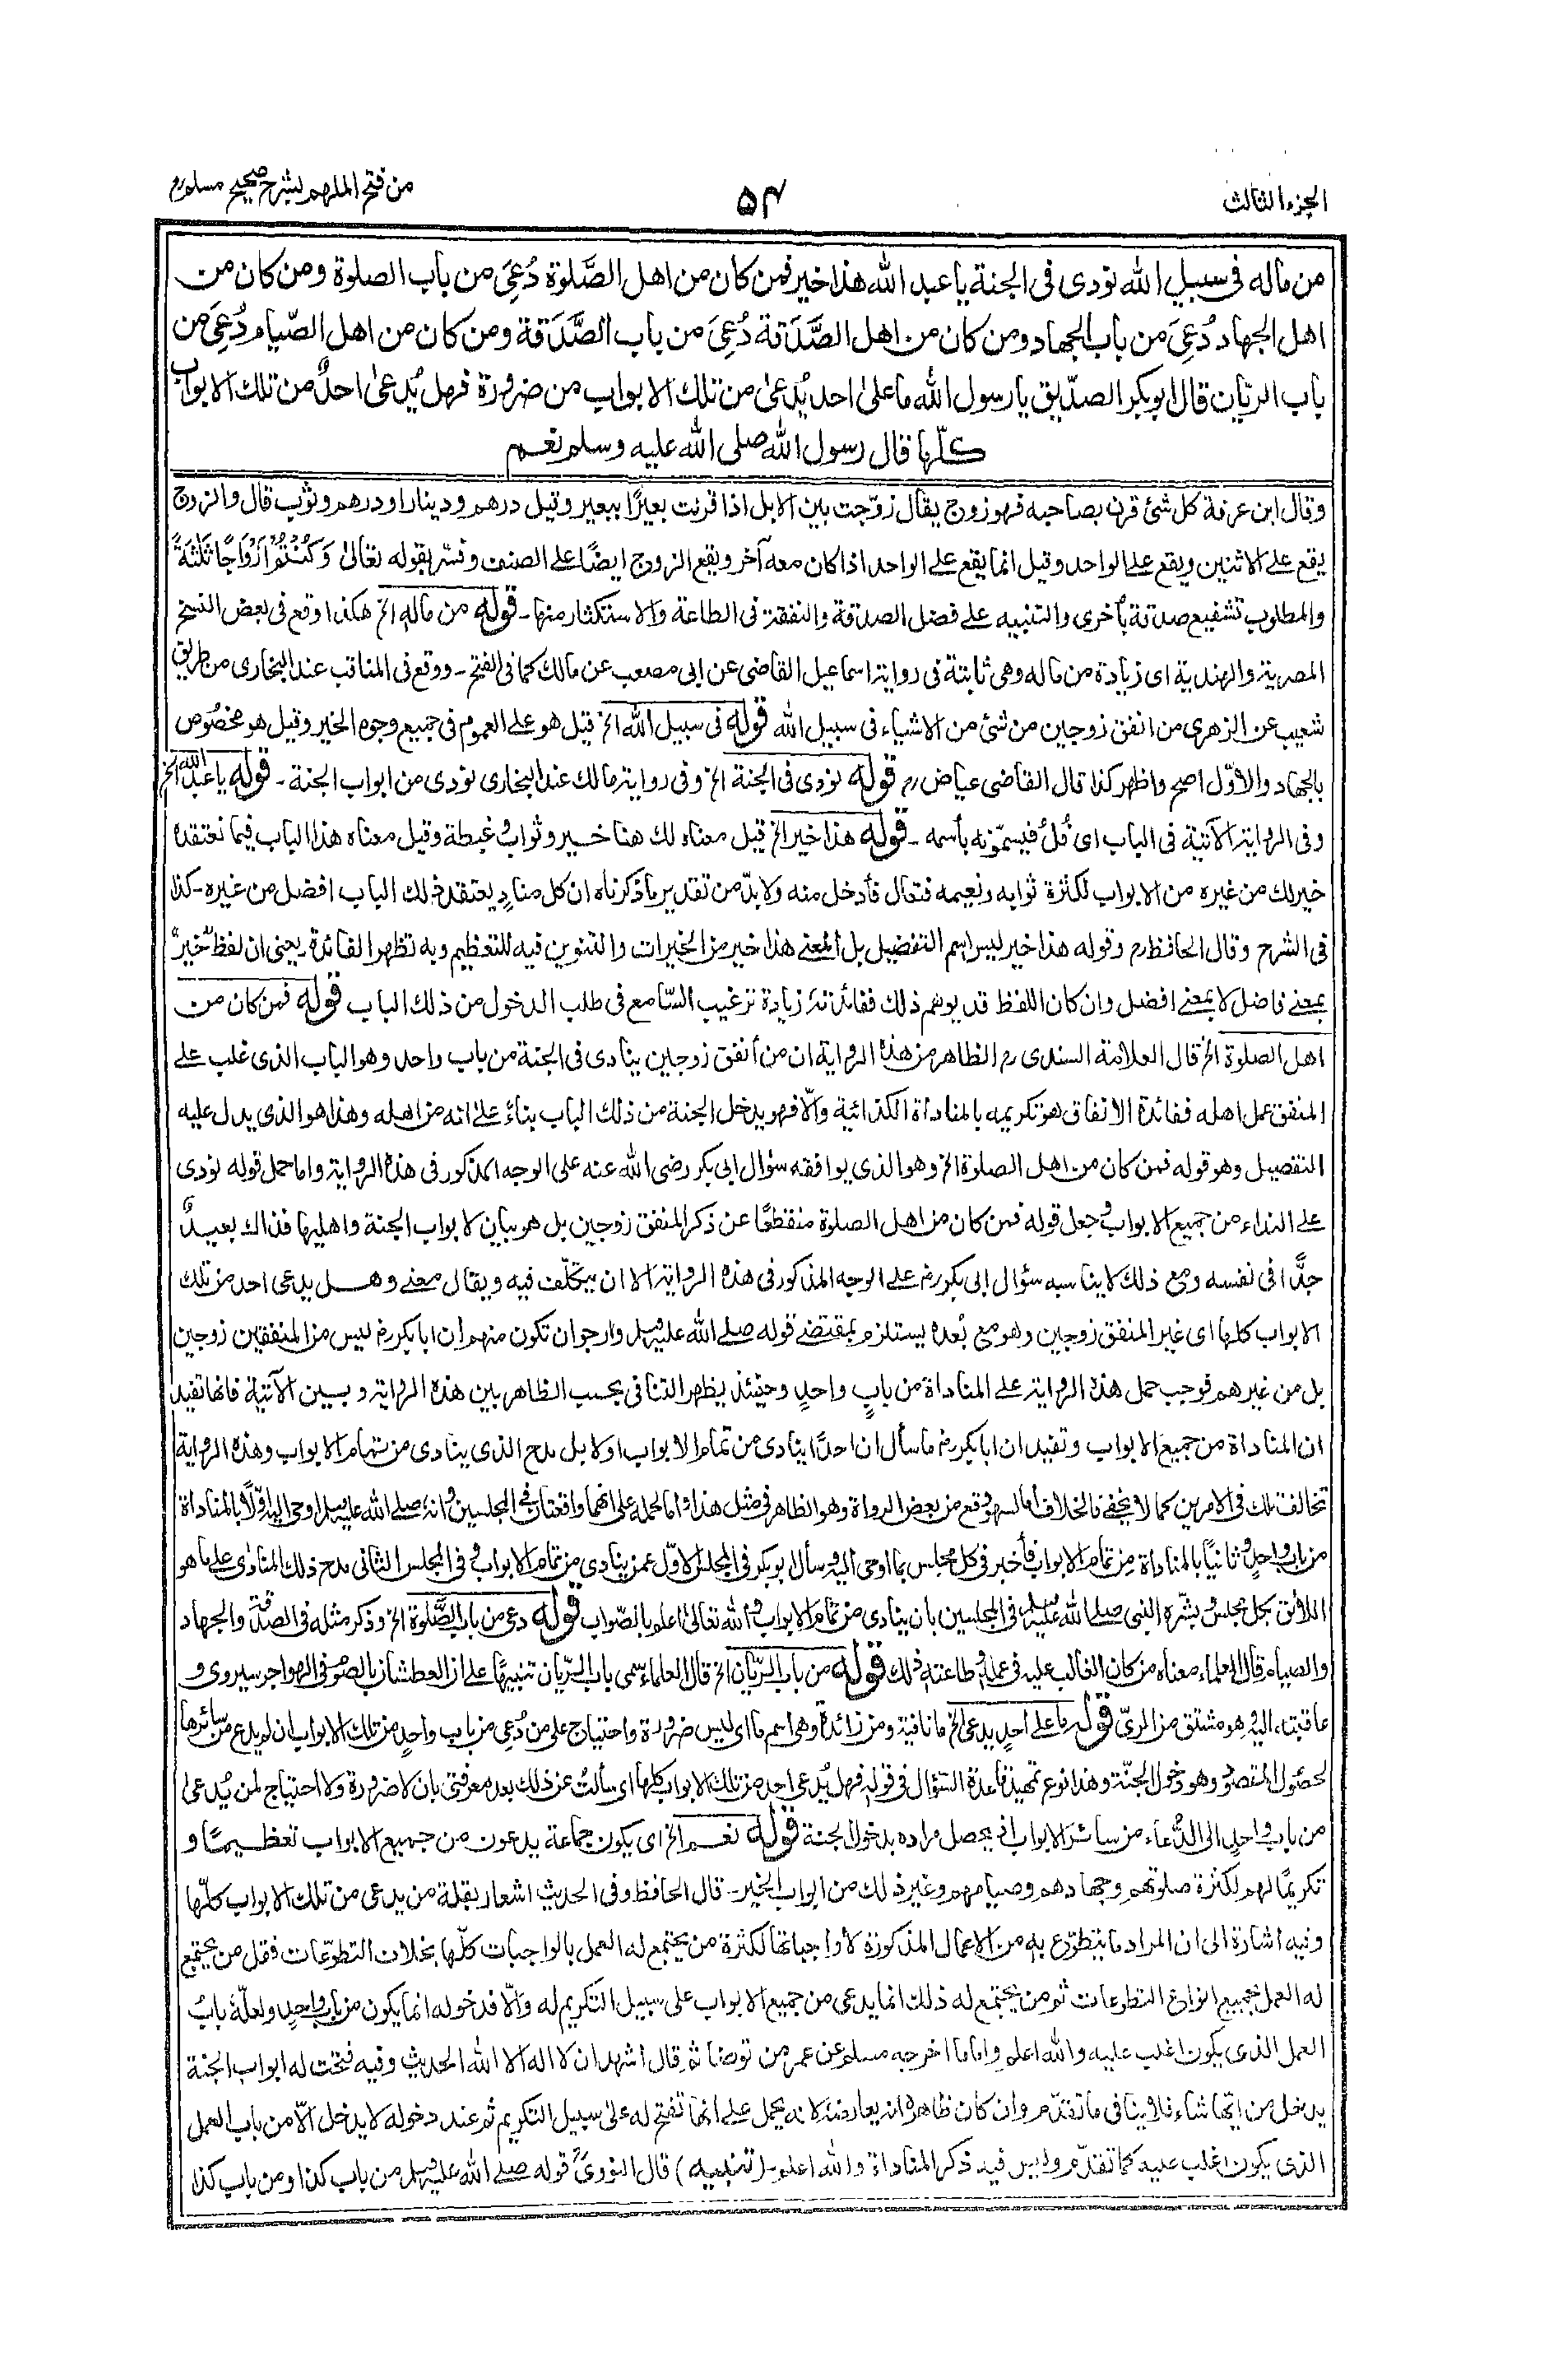 الجزء الثالث
۵۴
من فتح الملهم بشرح صحيح مسلم
من ماله فى سبيل الله نودى فى الجنة يا عبد الله هذا خير فمن كان من اهل الصَّلٰوة دُعِىَ من باب الصلٰوة ومن كان من
اهل الجهاد دُعِىَ من باب الجهاد ومن كان من اهل الصَّدَقة دُعِىَ من باب الصَّدَقة ومن كان من اهل الصّيام دُعِىَ من
باب الريّان قال ابو بكر الصدّيق يا رسول الله ما علىٰ احد يُدعىٰ من تلك الابواب من ضرورة فهل يُدعىٰ احدٌ من تلك الابواب
كلّها قال رسول الله صلى الله عليه وسلم نعم
وقال ابن عرفة كل شئ قرن بصاحبه فهو زوج يقال زوّجت بين الابل اذا قرنت بعيرًا ببعير وقيل درهم ودينار او درهم وثوب قال والزوج
يقع على الاثنين ويقع على الواحد وقيل انما يقع على الواحد اذا كان معه آخر ويقع الزوج ايضًا على الصنف وفسّر بقوله تعالىٰ وَكُنْتُمْ اَزْوَاجًا ثَلٰثَةً
والمطلوب تشفيع صدقة بأخرى والتنبيه على فضل الصدقة والنفقة فى الطاعة والاستكثار منها۔ قوله من ماله الخ هكذا وقع فى بعض النسخ
المصرية والهندية اى زيادة من ماله وهى ثابتة فى رواية اسماعيل القاضى عن ابى مصعب عن مالك كما فى الفتح۔ ووقع فى المناقب عند البخارى من طريق
شعيب عن الزهرى من انفق زوجين من شئ من الاشياء فى سبيل الله قوله فى سبيل الله الخ قيل هو على العموم فى جميع وجوه الخير وقيل هو مخصوص
بالجهاد والاوّل اصح واظهر كذا قال القاضى عياض رح قوله نودى فى الجنة الخ وفى رواية مالك عند البخارى نودى من ابواب الجنة۔ قوله يا عبد الله الخ
وفى الرواية الآتية فى الباب اى فُلُ فيسمّونه بأسمه۔ قوله هذا خير الخ قيل معناه لك هنا خير وثواب وغبطة وقيل معناه هذا الباب فيما نعتقده
خير لك من غيره من الابواب لكثرة ثوابه ونعيمه فتعال فأدخل منه ولا بدّ من تقدير ما ذكرناه ان كل منادٍ يعتقد ذلك الباب افضل من غيره۔ كذا
فى الشرح وقال الحافظ رح وقوله هذا خير ليس اسم التفضيل بل المعنى هذا خير من الخيرات والتنوين فيه للتعظيم وبه تظهر الفائدة۔ يعنى ان لفظ خير
بمعنى فاضل لا بمعنى افضل وان كان اللفظ قد يوهم ذلك ففائدته زيادة ترغيب السّامع فى طلب الدخول من ذلك الباب قوله فمن كان من
اهل الصلوة الخ قال العلامة السندى رح الظاهر من هذه الرواية ان من أنفق زوجين ينادى فى الجنة من باب واحد وهو الباب الذى غلب على
المنفق عمل اهله ففائدة الانفاق هو تكريمه بالمناداة الكذائية والّا فهو يدخل الجنة من ذلك الباب بناءً علىٰ انه من اهله وهذا هو الذى يدل عليه
التفصيل وهو قوله فمن كان من اهل الصلوة الخ وهو الذى يوافقه سؤال ابى بكر رضى الله عنه على الوجه المذكور فى هذه الرواية واما حمل قوله نودى
على النداء من جميع الابواب وجعل قوله فمن كان من اهل الصلوة منقطعًا عن ذكر المنفق زوجين بل هو بيان لابواب الجنة واهليها فذاك بعيدٌ
جدًّا فى نفسه ومع ذلك لا يناسبه سؤال ابى بكر رض على الوجه المذكور فى هذه الرواية الا ان يتكلّف فيه ويقال معنى وهل يدعى احد من تلك
الابواب كلها اى غير المنفق زوجين وهو مع بُعده يستلزم بمقتضى قوله صلى الله عليه وسلم وارجو ان تكون منهم ان ابا بكر رض ليس من المنفقين زوجين
بل من غيرهم فوجب حمل هذه الرواية على المناداة من بابٍ واحدٍ وحينئذ يظهر التنافى بحسب الظاهر بين هذه الرواية وبين الآتية فانها تفيد
ان المناداة من جميع الابواب وتفيد ان ابا بكر رض ما سأل ان احدًا ينادى من تمام الابواب اولا بل مدح الذى ينادى من تمام الابواب وهذه الرواية
تخالف تلك فى الامرين كما لا يخفى فالخلاف اما لسهو وقع من بعض الرواة وهو الظاهر فى مثل هذا واما لحمله على انهما واقعتان فى المجلسين وانه صلى الله عليه وسلم اوحى اليه اوّلًا بالمناداة
من باب واحدٍ وثانيًا بالمناداة من تمام الابواب فأخبر فى كل مجلس بما اوحى اليه وسأل ابو بكر فى المجلس الاوّل عمن ينادى من تمام الابواب وفى المجلس الثانى مدح ذلك المنادٰى على ما هو
اللائق بكل مجلس وبشّره النبى صلى الله عليه وسلم فى المجلسين بان ينادى من تمام الابواب والله تعالىٰ اعلم بالصّواب قوله دعى من باب الصَّلوة الخ وذكر مثله فى الصدقة والجهاد
والصيام قال العلماء معناه من كان الغالب عليه فى عمله وطاعته ذلك قوله من باب الريّان الخ قال العلماء سمى باب الريّان تنبيهًا على ان العطشان بالصوم فى الهواجر سيروى و
عاقبته اليه وهو مشتق من الرىّ قوله ما على احدٍ يدعى الخ ما نافية ومن زائدة وهى اسم ما اى ليس ضرورة واحتياج على من دُعى من باب واحدٍ من تلك الابواب ان لم يدع من سائرها
لحصول المقصود وهو دخول الجنّة وهذا نوع تمهيد قاعدة السّؤال فى قوله فهل يُدعى احد من تلك الابواب كلها اى سألتُ عن ذلك بعد معرفتى بان لا ضرورة ولا احتياج لمن يُدعىٰ
من باب واحدٍ الى الدُّعاء من سائر الابواب اذ يحصل مراده بدخول الجنة قوله نعم الخ اى يكون جماعة يدعون من جميع الابواب تعظيمًا و
تكريمًا لهم لكثرة صلوتهم وجهادهم وصيامهم وغير ذلك من ابواب الخير۔ قال الحافظ وفى الحديث اشعار بقلة من يدعى من تلك الابواب كلّها
وفيه اشارة الى ان المراد ما يتطوّع به من الاعمال المذكورة لا واجباتها لكثرة من يجتمع له العمل بالواجبات كلّها بخلاف التطوّعات فقل من يجتمع
له العمل بجميع انواع التطوعات ثم من يجتمع له ذلك انما يدعى من جميع الابواب على سبيل التكريم له والّا فدخوله انما يكون من باب واحدٍ ولعلّه بابُ
العمل الذى يكون اغلب عليه والله اعلم واما ما اخرجه مسلم عن عمر من توضأ ثم قال اشهد ان لا اله الا الله الحديث وفيه فتحت له ابواب الجنة
يدخل من ايّها شاء فلا ينافى ما تقدّم وان كان ظاهره انه يعارضه لانه يحمل على انها تفتح له علىٰ سبيل التكريم ثم عند دخوله لا يدخل الّا من باب العمل
الذى يكون اغلب عليه كما تقدّم وليس فيه ذكر المناداة والله اعلم۔ (تنبيه) قال النووىّ قوله صلى الله عليه وسلم من باب كذا ومن باب كذا